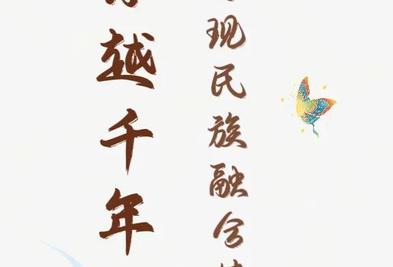 越千年
现民族融合